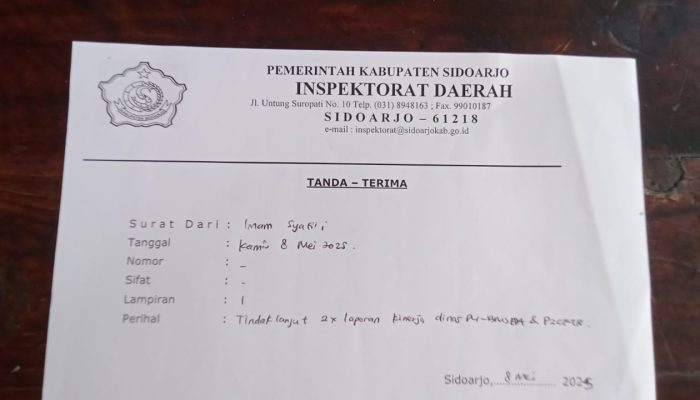 PEMERINTAH KABUPATEN SIDOARJO
INSPEKTORAT DAERAH
Jl. Untung Suropati No. 10 Telp. (031) 8948163 ; Fax. 99010187
SIDOARJO – 61218
e-mail : inspektorat@sidoarjokab.go.id
TANDA – TERIMA
Surat Dari : Imam Syafi'i
Tanggal : Kamis 8 Mei 2025.
Nomor : -
Sifat : -
Lampiran : 1
Perihal : Tindak lanjut 2x laporan kinerja dinas PU- &
Sidoarjo, 8 Mei 2025